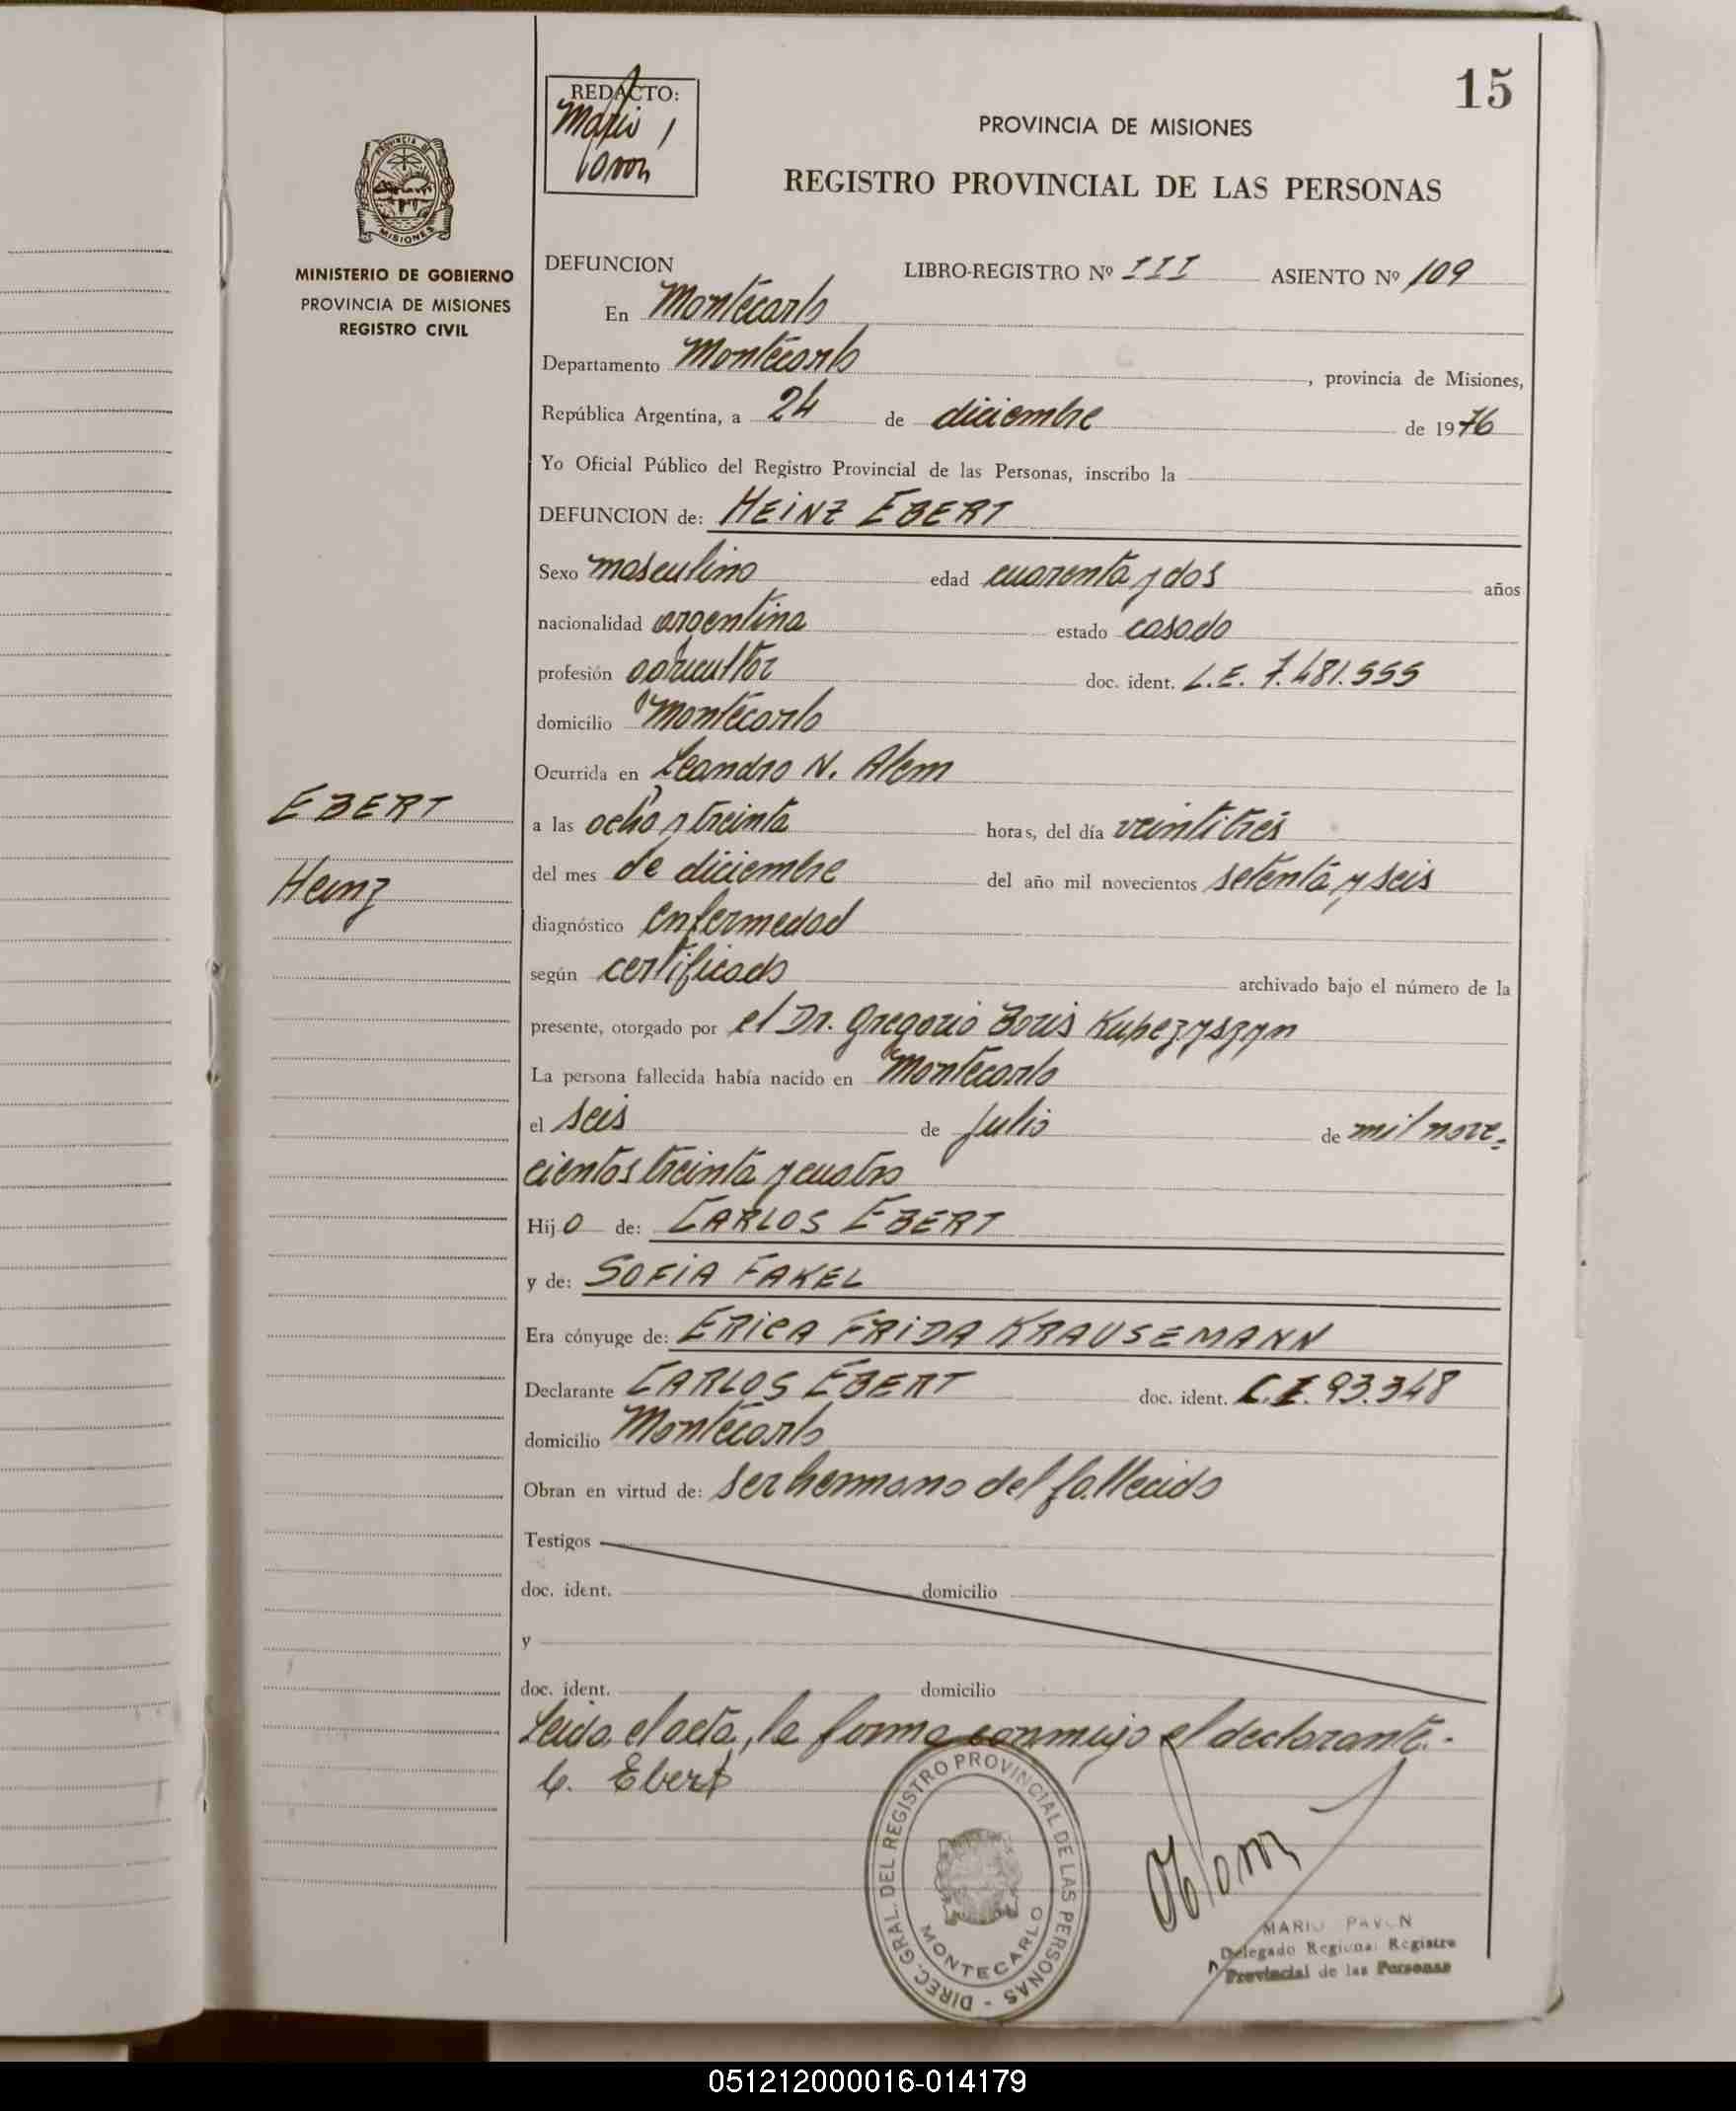 15
REDACTO:
Mario
PROVINCIA DE MISIONES
REGISTRO PROVINCIAL DE LAS PERSONAS
MISIONES
MINISTERIO DE GOBIERNO
PROVINCIA DE MISIONES
REGISTRO CIVIL
DEFUNCION LIBRO-REGISTRO Nº III ASIENTO Nº 109
En Montecarlo
Departamento Montecarlo, provincia de Misiones,
República Argentina, a 24 de diciembre de 1976
Yo Oficial Público del Registro Provincial de las Personas, inscribo la
DEFUNCION de: HEINZ EBERT
Sexo masculino edad cuarenta y dos años
nacionalidad argentina estado casado
profesión agricultor doc. ident. L.E. 7.481.555
domicilio Montecarlo
Ocurrida en Leandro N. Alem
EBERT
Heinz
a las ocho y treinta horas, del día veintitrés
del mes de diciembre del año mil novecientos setenta y seis
diagnóstico enfermedad
según certificado archivado bajo el número de la
presente, otorgado por el Dr. Gregorio Boris Kupezyszyn
La persona fallecida había nacido en Montecarlo
el seis de julio de mil nove-
cientos treinta y cuatro
Hijo de: CARLOS EBERT
y de: SOFIA FAKEL
Era cónyuge de: ERICA FRIDA KRAUSEMANN
Declarante CARLOS EBERT doc. ident. C.I. 93.348
domicilio Montecarlo
Obran en virtud de: ser hermano del fallecido
Testigos
doc. ident. domicilio
y
doc. ident. domicilio
Leida el acta, la firma conmigo el declarante.-
C. Ebert
DIREC. GRAL. DEL REGISTRO PROVINCIAL DE LAS PERSONAS -
MONTECARLO
MARIO PAVON
Delegado Regional Registro
Provincial de las Personas
051212000016-014179